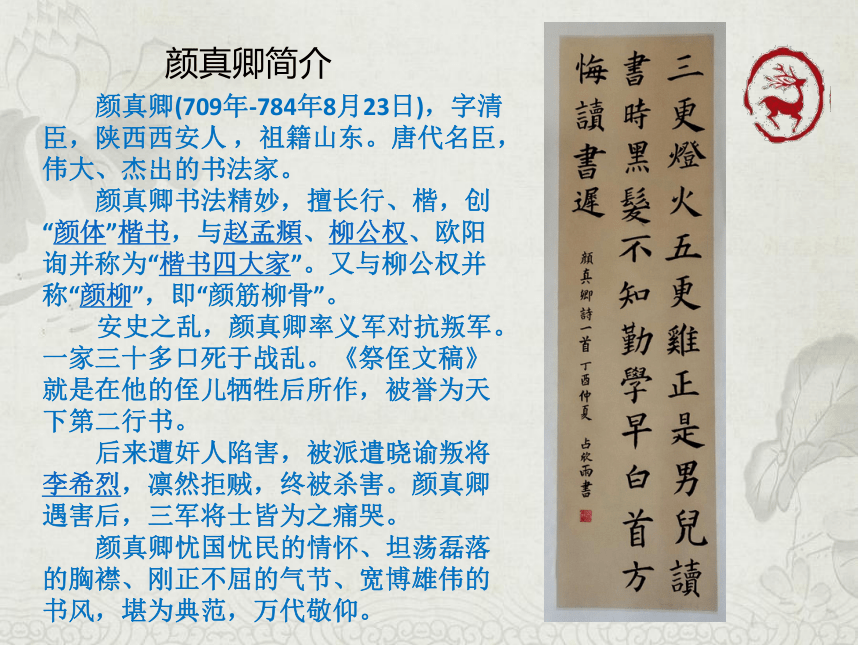 颜真卿简介
颜真卿(709年-784年8月23日)，字清
臣，陕西西安人 ，祖籍山东。唐代名臣，
伟大、杰出的书法家。
颜真卿书法精妙，擅长行、楷，创
“颜体”楷书，与赵孟頫、柳公权、欧阳
询并称为“楷书四大家”。又与柳公权并
称“颜柳”，即“颜筋柳骨”。
安史之乱，颜真卿率义军对抗叛军。
一家三十多口死于战乱。《祭侄文稿》
就是在他的侄儿牺牲后所作，被誉为天
下第二行书。
后来遭奸人陷害，被派遣晓谕叛将
李希烈，凛然拒贼，终被杀害。颜真卿
遇害后，三军将士皆为之痛哭。
颜真卿忧国忧民的情怀、坦荡磊落
的胸襟、刚正不屈的气节、宽博雄伟的
书风，堪为典范，万代敬仰。
三更燈火五更雞正是男兒讀
書時黑髮不知勤學早白首方
悔讀書遲
顏真卿詩一首 丁酉仲夏 占欣雨書